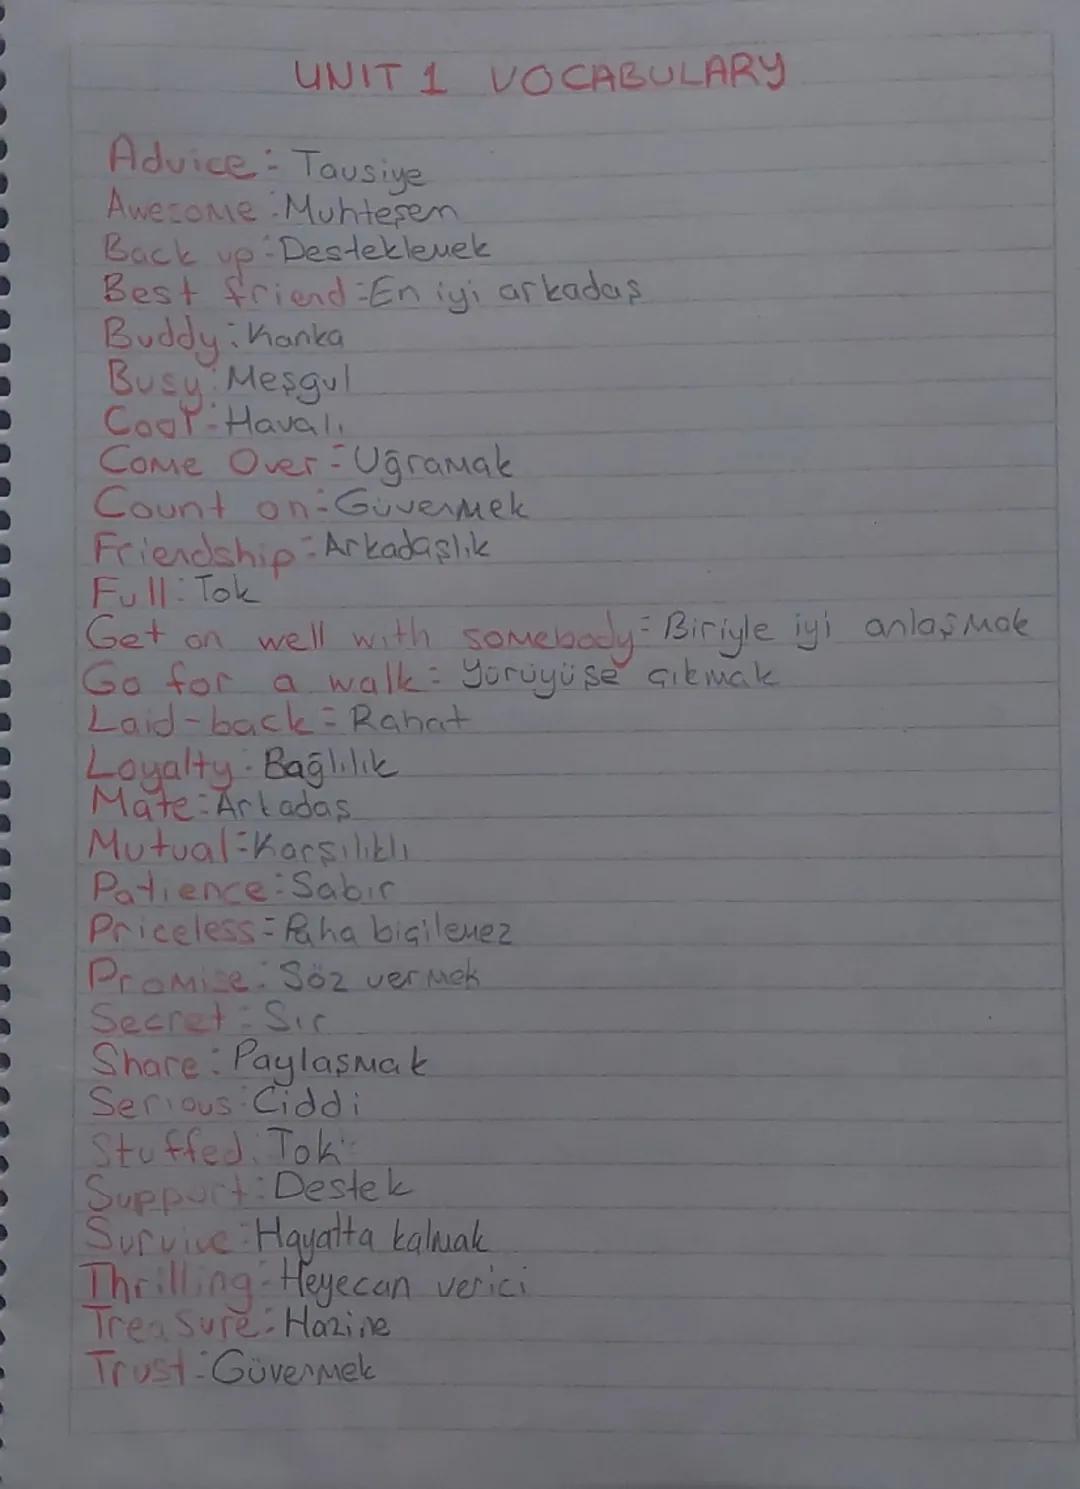 UNIT 1 VOCABULARY
Advice: Tavsiye
Awesome: Muhteşem
Back up: Desteklemek
Best friend: En iyi arkadaş
Buddy: Kanka
Busy: Meşgul
Cool: Havalı
Come Over: Uğramak
Count on: Güvenmek
Friendship: Arkadaşlık
Full: Tok
Get on well with somebody: Biriyle iyi anlaşmak
Go for a walk: Yürüyüşe çıkmak
Laid-back: Rahat
Loyalty: Bağlılık
Mate: Arkadaş
Mutual: Karşılıklı
Patience: Sabır
Priceless: Paha biçilemez
Promise: Söz vermek
Secret: Sır
Share: Paylaşmak
Serious: Ciddi
Stuffed: Tok
Support: Destek
Survive: Hayatta kalmak
Thrilling: Heyecan verici
Treasure: Hazine
Trust: Güvenmek